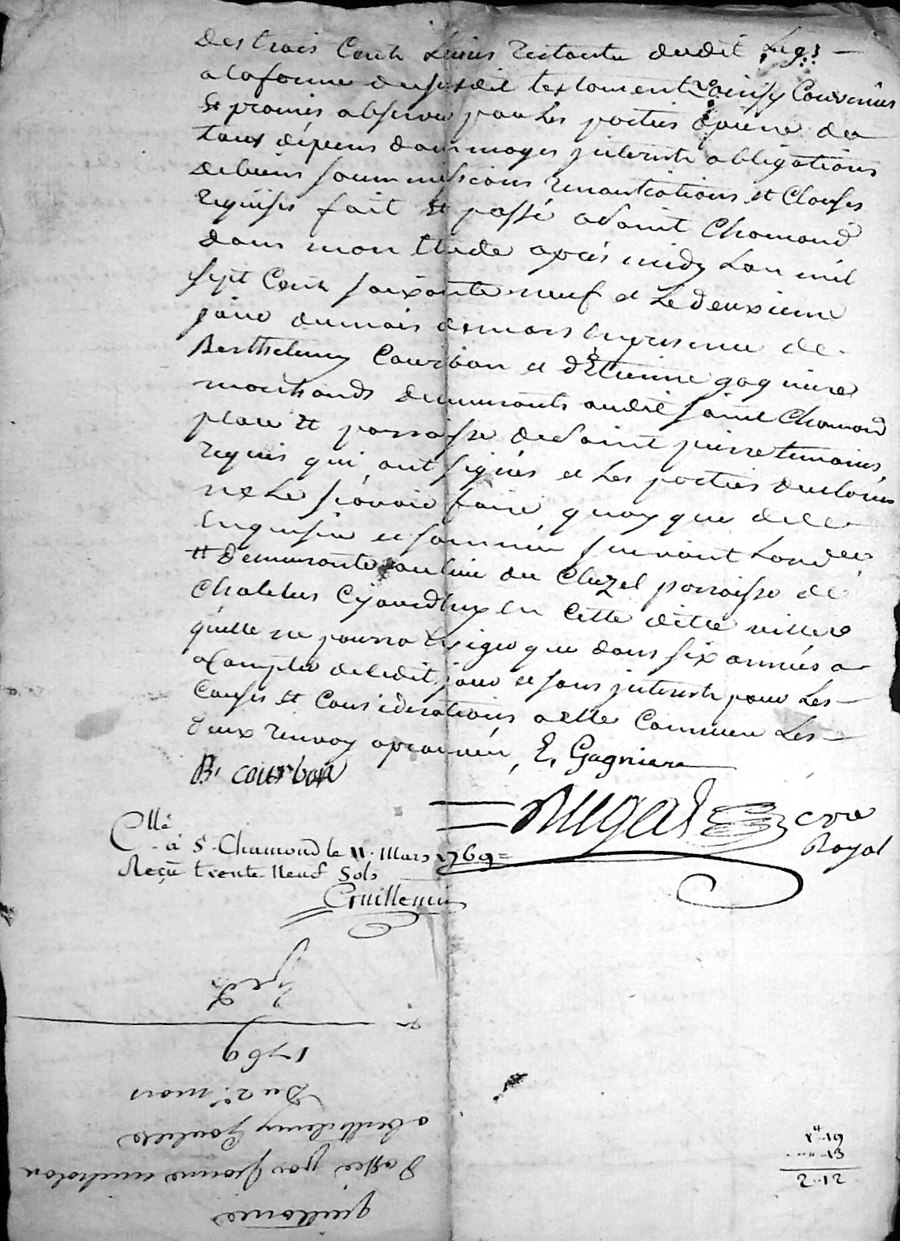 Des trois Cents Livres restante dudit Legs
a la forme du susdit testament Ainsy Convenus
et promis observer par les parties a peine de
tous dépens dommages interests obligations
de biens soummissions renonciations et Clauses
requises fait et passé a Saint Chamond
dans mon Etude aprés midy Lan mil
sept Cents soixante neuf et Le deuxieme
jour du mois de mars En presence de
Berthelemy Courbon et d'Etienne gagniere
marchands demeurants audit Saint Chamond
place et parroisse de Saint pierre temoins
requis qui ont signés et Les parties declarées
ne Le sçavoir faire quoy que de ce
Enquises et sommées suivant Lord.ce
# demeurante au lieu du Cluzel parroisse de
Chatelus Cejourdhuy En cette ditte ville #
quelle ne pourra Exiger que dans six années a
Compter de cedit jour et sans interests pour Les
Causes et Considerations a elle Connues Les
deux renvoy aprouvés, E. Gagniere
B. courbon
nre
Royal
C.llé
à S.t Chamond le 11. Mars 1769 =
Reçu trente Neuf Sols
1769
Du 2e. mars
a berthelemy
passée par
quittance
2tt..19
.....13
2..12